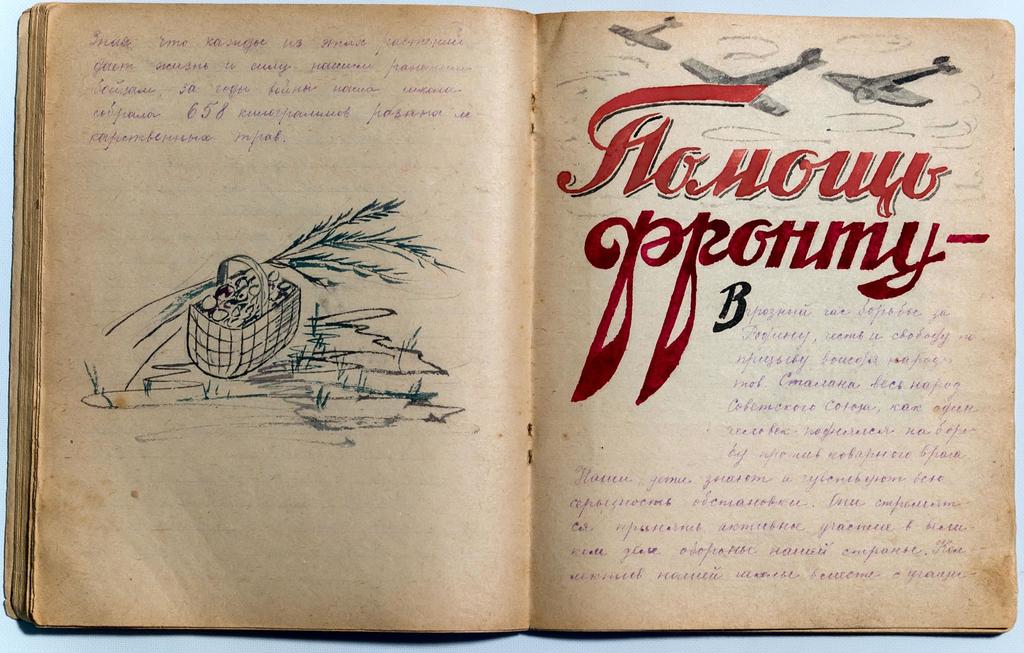 Зная, что каждое из этих растений
дает жизнь и силу нашим раненым
бойцам, за годы войны наша школа
собрала 658 килограммов разных ле
карственных трав.
Помощь
фронту-
В грозный час борьбы за
Родину, честь и свободу по
призыву вождя народ-
тов Сталина весь народ
Советского Союза, как один
человек поднялся на борь-
бу против коварного врага.
Наши дети знают и чувствуют всю
серьезность обстановки. Они стремят-
ся принять активное участие в вели-
ком деле обороны нашей страны. Кол
лектив нашей школы вместе с учащи-